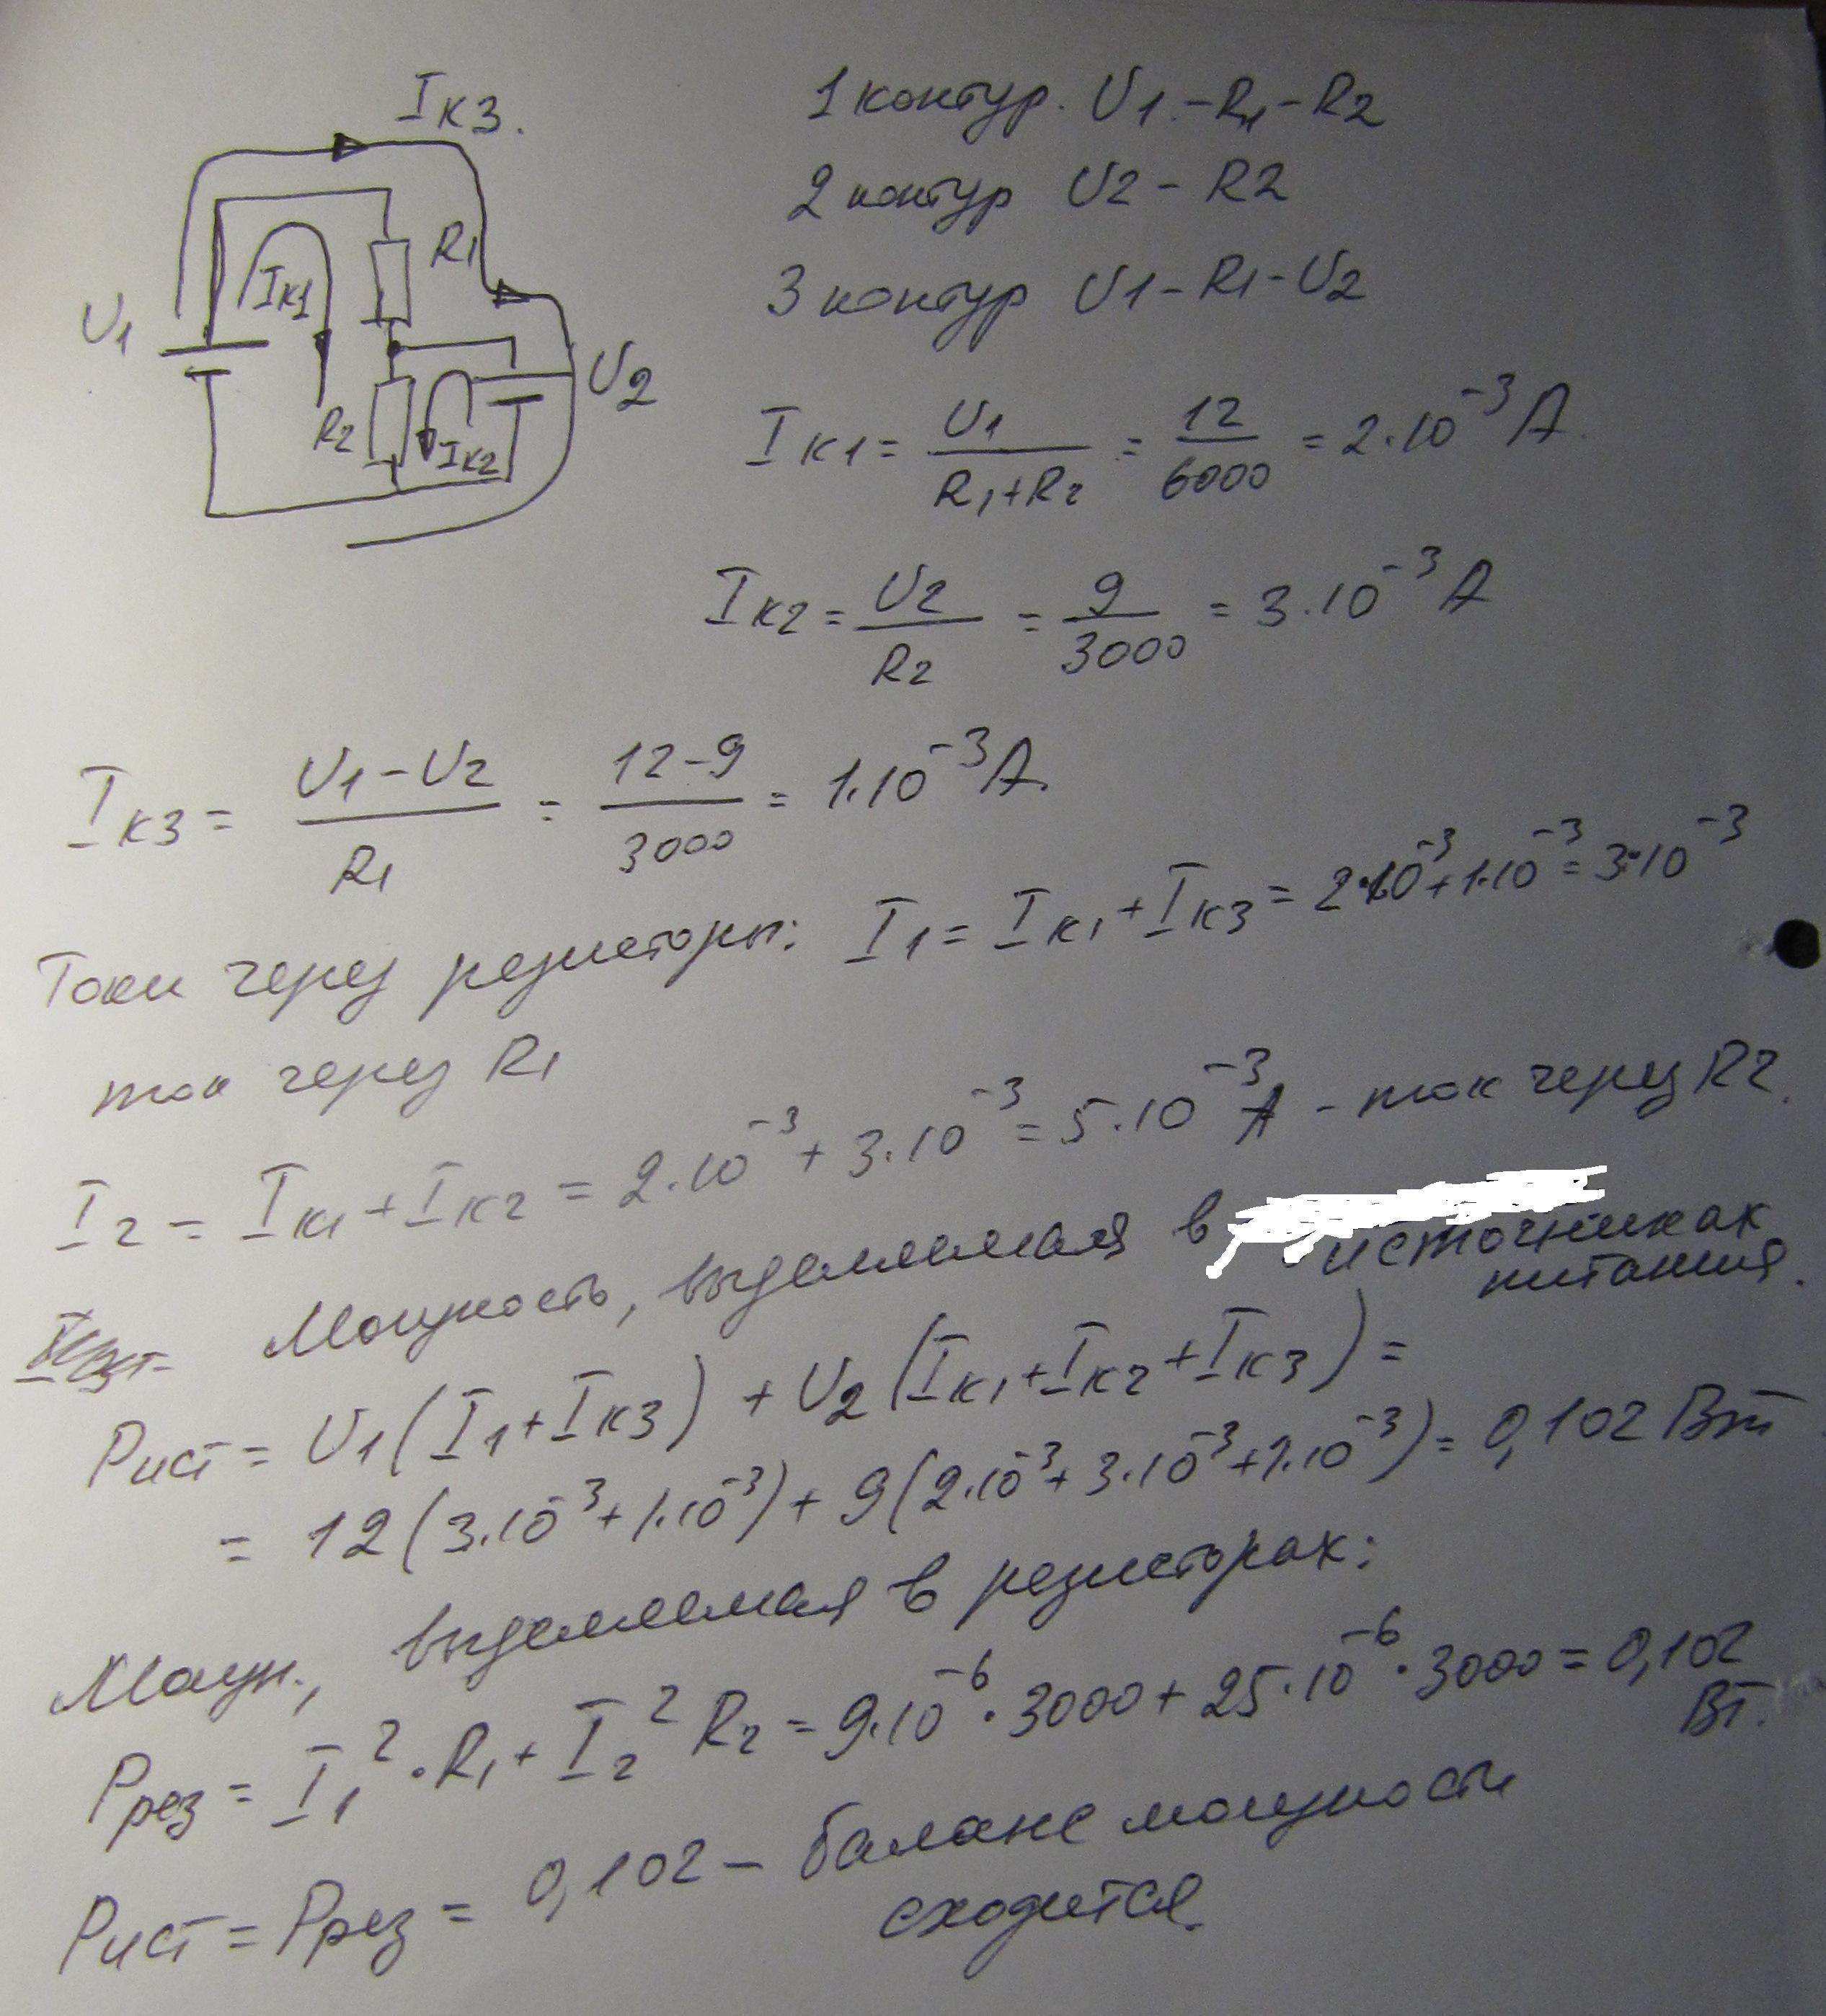 Iк3.
U1
Iк1
R1
R2
Iк2
U2
1 контур. U1 - R1 - R2
2 контур U2 - R2
3 контур U1 - R1 - U2
Iк1 = U1 / (R1 + R2) = 12 / 6000 = 2·10⁻³ А.
Iк2 = U2 / R2 = 9 / 3000 = 3·10⁻³ А
Iк3 = (U1 - U2) / R1 = (12 - 9) / 3000 = 1·10⁻³ А.
Токи через резисторы: I1 = Iк1 + Iк3 = 2·10⁻³ + 1·10⁻³ = 3·10⁻³
ток через R1
I2 = Iк1 + Iк2 = 2·10⁻³ + 3·10⁻³ = 5·10⁻³ А - ток через R2.
Мощность, выделяемая в источниках
питания.
Pист = U1 (I1 + Iк3) + U2 (Iк1 + Iк2 + Iк3) =
= 12 (3·10⁻³ + 1·10⁻³) + 9 (2·10⁻³ + 3·10⁻³ + 1·10⁻³) = 0,102 Вт
Мощн., выделяемая в резисторах:
Pрез = I1² · R1 + I2² R2 = 9·10⁻⁶ · 3000 + 25·10⁻⁶ · 3000 = 0,102
Вт.
Pист = Pрез = 0,102 - баланс мощности
сходится.